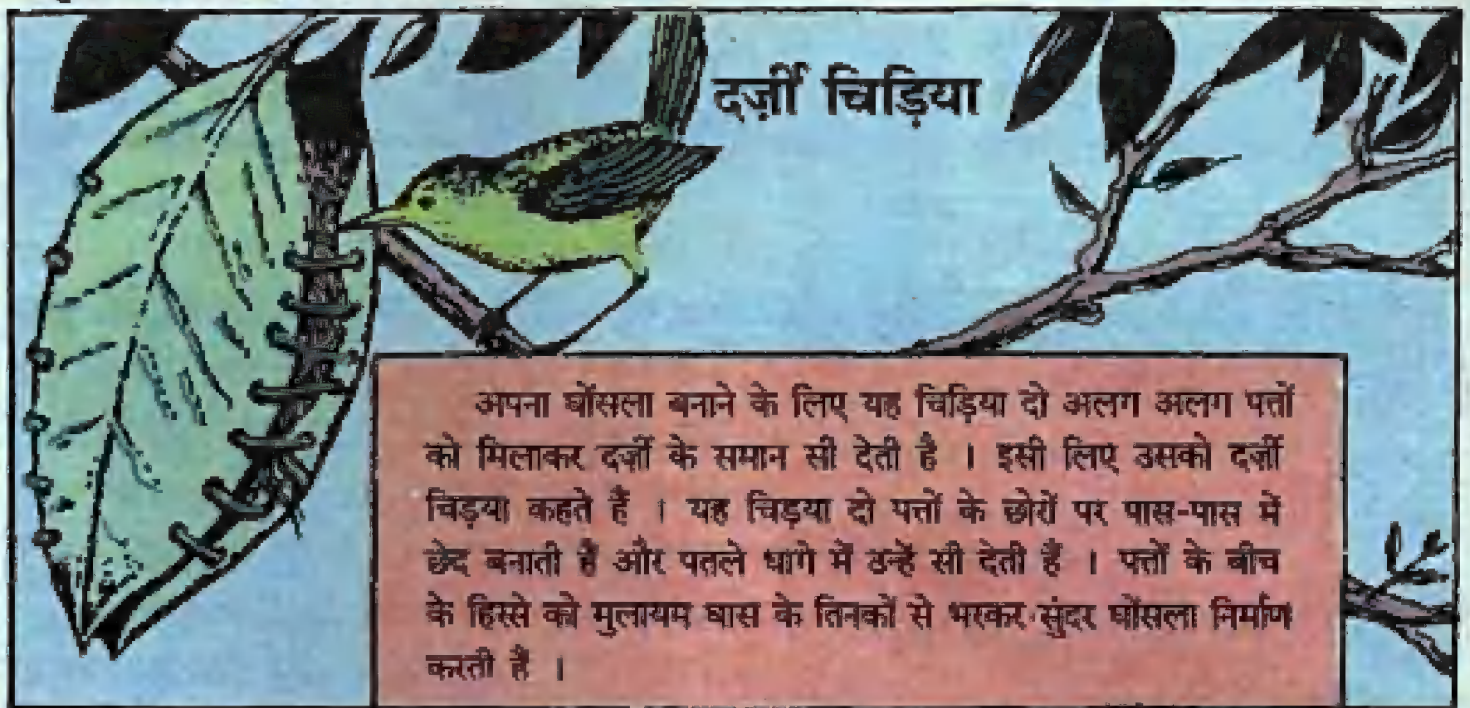 दर्ज़ी चिड़िया
अपना घोंसला बनाने के लिए यह चिड़िया दो अलग अलग पत्तों
को मिलाकर दर्ज़ी के समान सी देती है । इसी लिए उसको दर्ज़ी
चिड़या कहते हैं । यह चिड़या दो पत्तों के छोरों पर पास-पास में
छेद बनाती हैं और पतले धागे में उन्हें सी देती हैं । पत्तों के बीच
के हिस्से को मुलायम घास के तिनकों से भरकर सुंदर घोंसला निर्माण
करती हैं ।